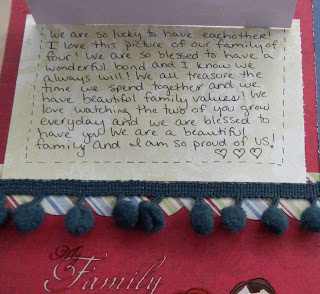 We are so lucky to have eachother!
I love this picture of our family of
four! We are so blessed to have a
wonderful bond and I know we
always will! We all treasure the
time we spend together and we
have beautiful family values! We
love watching the two of you grow
everyday and we are blessed to
have you. We are a beautiful
family and I am so proud of US!
My
Family